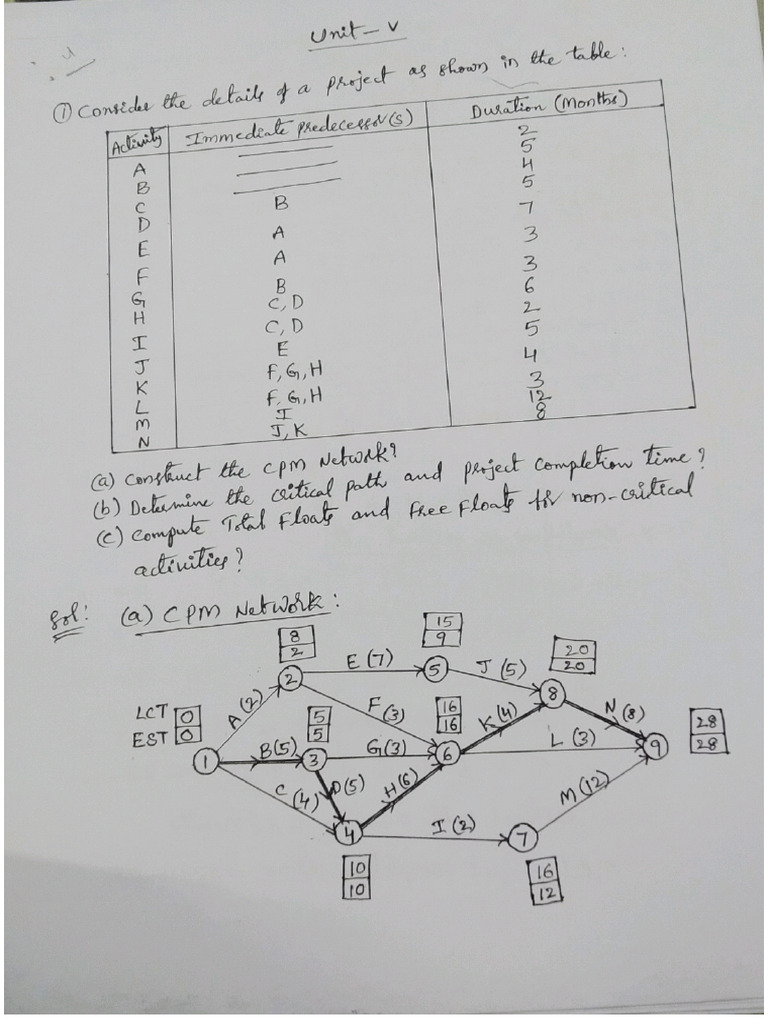 Unit - V
① Consider the details of a project as shown in the table:
Activity Immediate Predecessor(s) Duration (Months)
A — 2
B — 5
C — 4
D B 5
E A 7
F A 3
G B 3
H C, D 6
I C, D 2
J E 5
K F, G, H 4
L F, G, H 3
M I 12
N J, K 8
(a) Construct the CPM Network?
(b) Determine the critical path and project completion time?
(c) Compute Total Floats and Free Floats for non-critical
activities?
Sol: (a) CPM Network:
8
2
15
9
20
20
E (7)
J (5)
2
5
8
LCT 0
EST 0
A (2)
5
5
F (3)
16
16
K (4)
N (8)
28
28
1
B (5)
3
G (3)
6
L (3)
9
C (4)
D (5)
H (6)
M (12)
4
I (2)
7
10
10
16
12